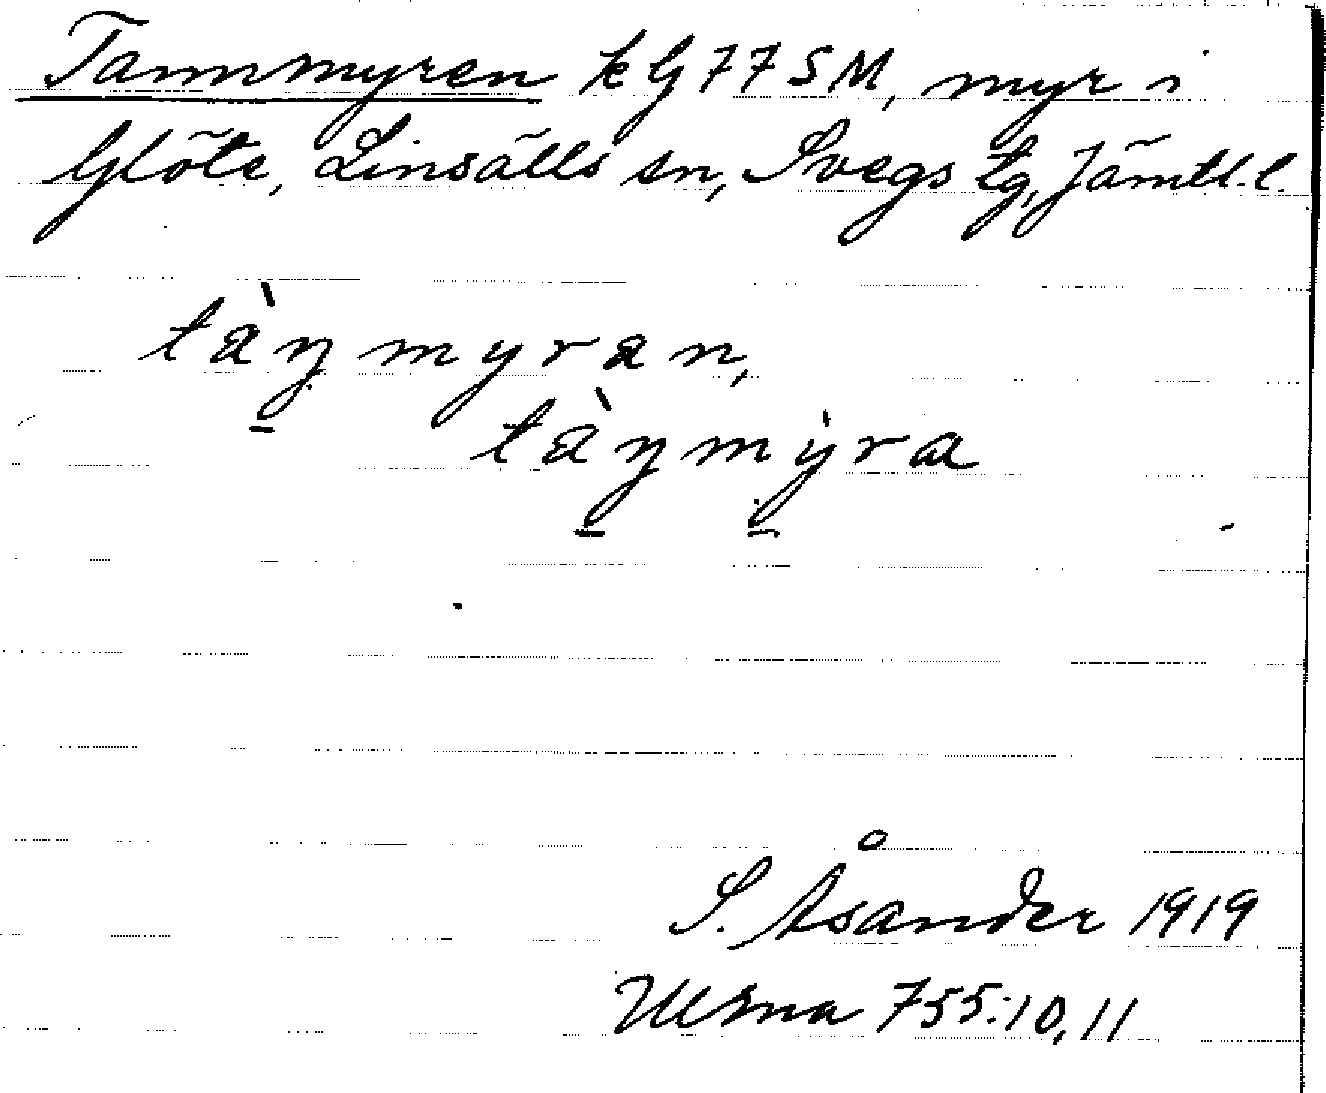 Tannmyren kG77SM, myr i
Glöte, Linsälls sn, Svegs tg, Jämtl. l.
tàŋmyran,
tàŋmỳra
S. Åsander 1919
Ulma 755:10,11